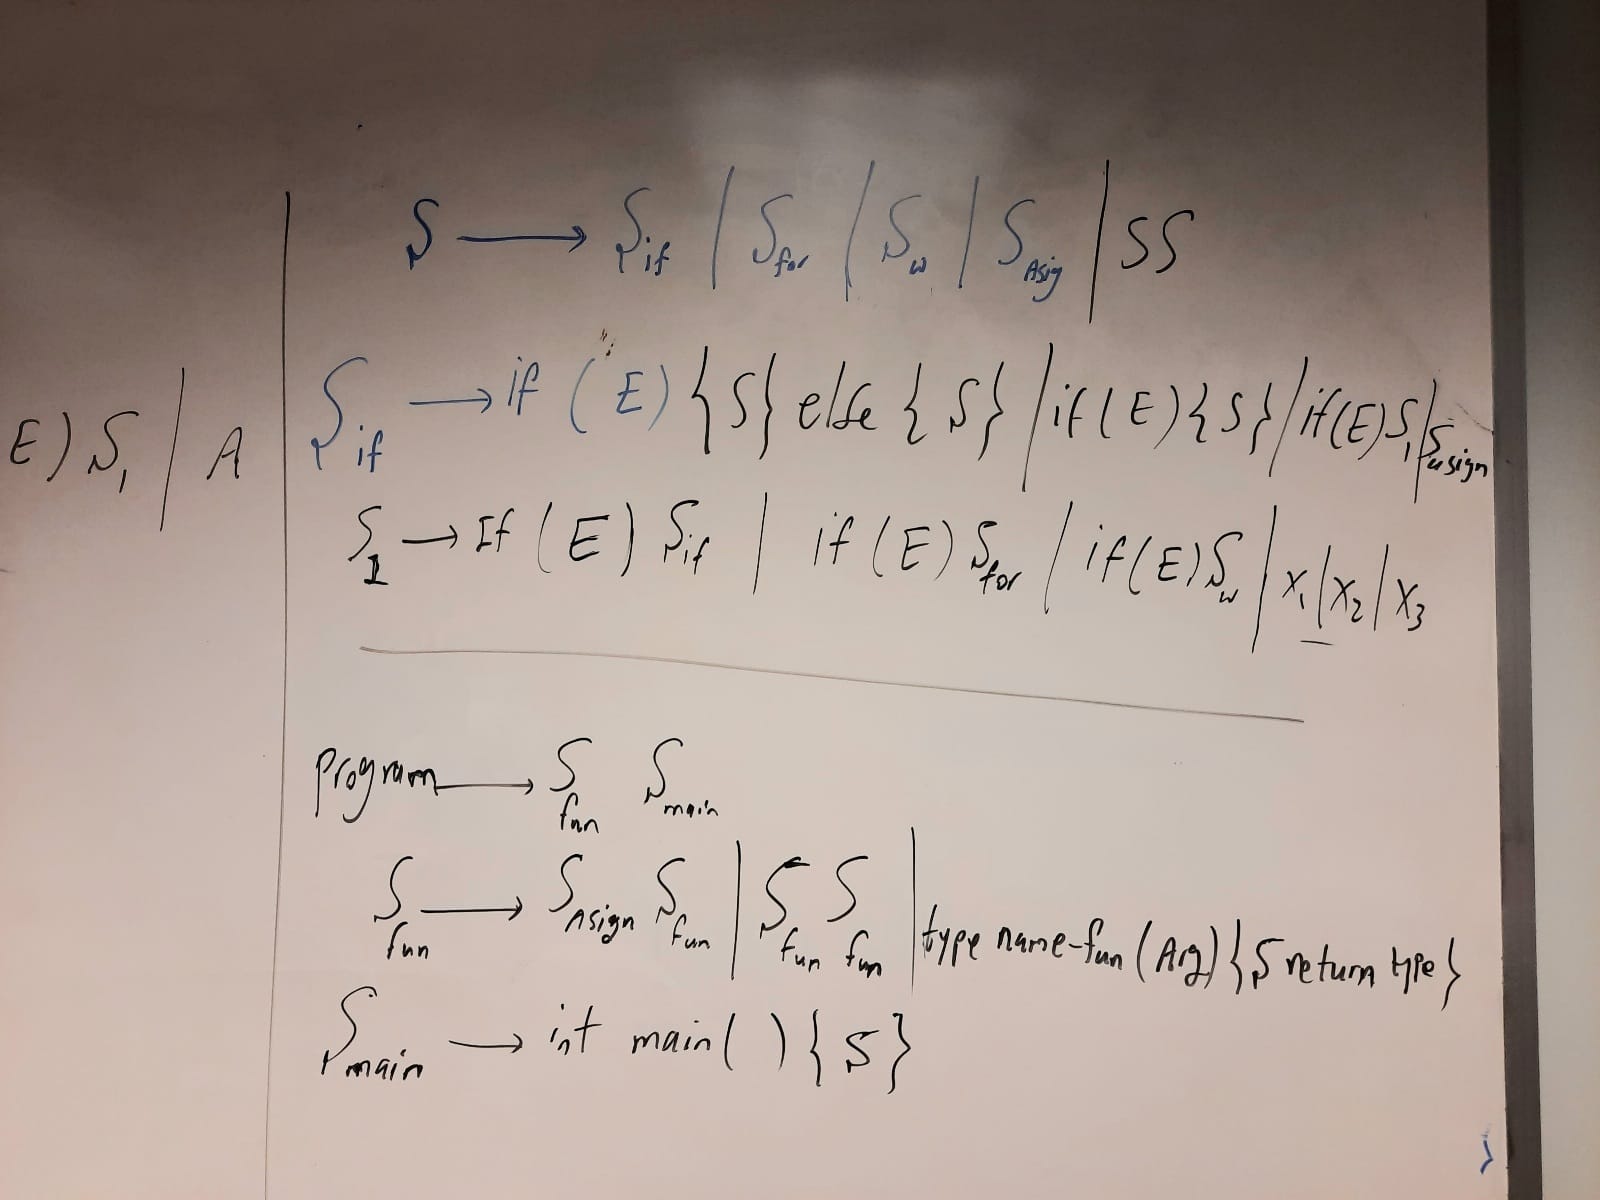 S → S_if | S_for | S_w | S_Asig | SS
E) S_1 | A
S_if → if (E) {S} else {S} | if(E){S} | if(E)S_1 | S_asign
S_1 → If (E) S_if | if (E) S_for | if(E)S_w | X_1 | X_2 | X_3
Program → S_fun S_main
S_fun → S_Asign S_fun | S_fun S_fun | type name-fun (Arg) {S return type}
S_main → int main( ) {S}